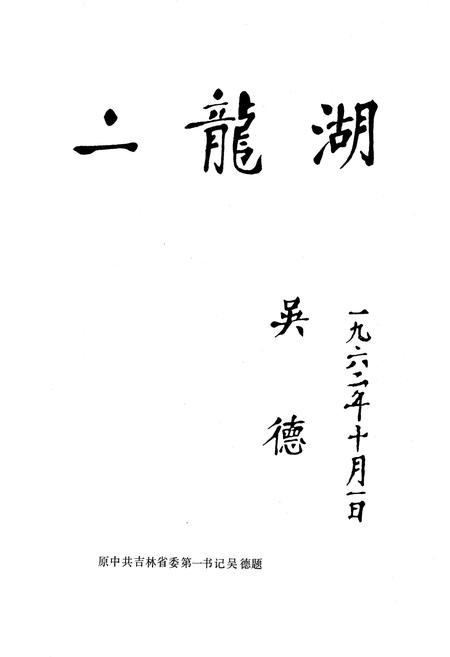 二龍湖
一九六二年十月一日
吳德
原中共吉林省委第一书记吴德题